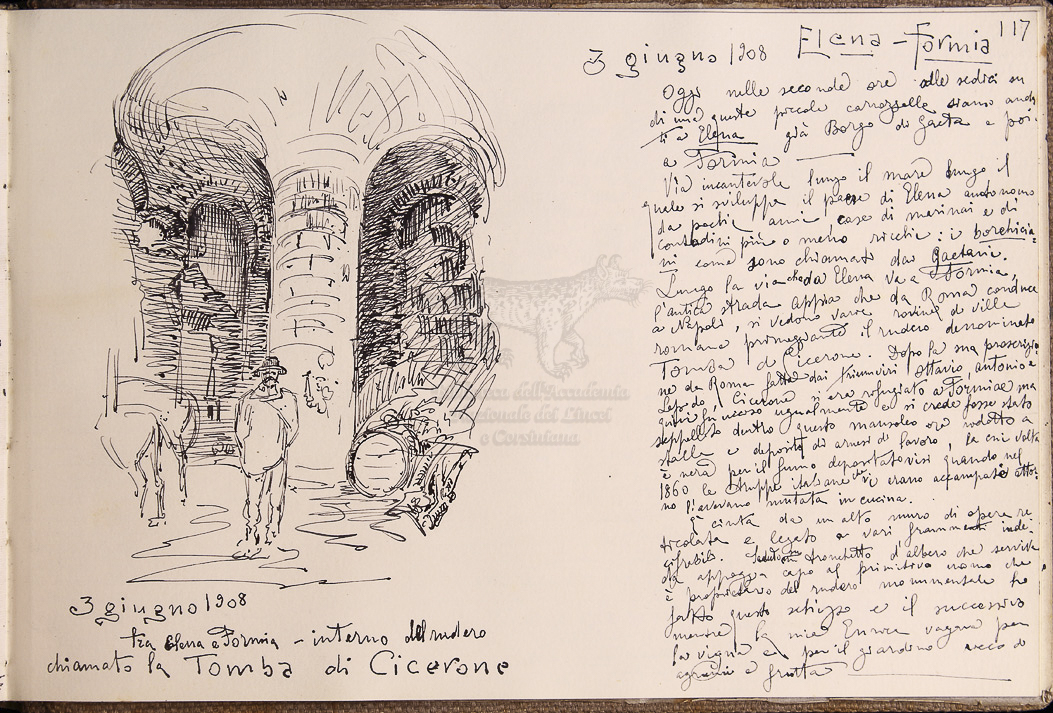 3 giugno 1908
tra Elena e Formia - interno del rudero
chiamato la Tomba di Cicerone
117
3 giugno 1908 Elena - Formia
Oggi nelle seconde ore alle sedici su
di una queste piccole carrozzelle siamo anda
ti a Elena già Borgo di Gaeta e poi
a Formia
Via incantevole lungo il mare lungo il
quale si sviluppa il paese di Elena autonomo
da pochi anni case di marinai e di
contadini più o meno ricchi: i borghicia
ni come sono chiamati dai Gaetani.
Lungo la via che da Elena va a Formia,
l'antica strada Appia che da Roma conduce
a Napoli, si vedono varie rovine di ville
romane primeggiante il rudero denominato
Tomba di Cicerone. Dopo la sua proscrizio
ne da Roma fatta dai triumviri Ottavio, Antonio e
Lepido, Cicerone si era rifugiato a Formiae ma
quivi fu ucciso ugualmente e si crede fosse stato
seppellito dentro questo mausoleo ora ridotto a
stalla e deposito di arnesi di lavoro, la cui volta
è nera per il fumo depositatovisi quando nel
1860 le truppe italiane vi erano accampate attor
no l'avevano mutata in cucina.
È cinta da un alto muro di opera re
ticolata e legato a vari frammenti inde
cifrabili. Seduto tronchetto d'albero che serviva
da appoggia capo al primitivo uomo che
è proprietario del rudero monumentale ho
fatto questo schizzo e il successivo
mentre la mia Enrica vagava per
la vigna e per il giardino ricco di
agrumi e frutta
Biblioteca dell'Accademia
Nazionale dei Lincei
e Corsiniana